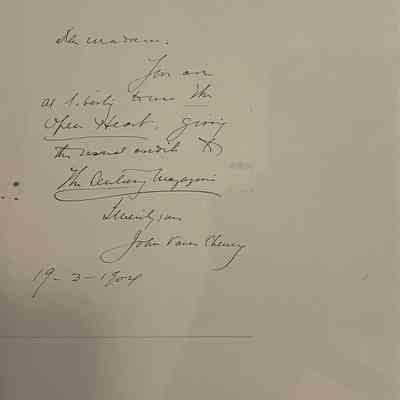 Dear madam:
You are
at liberty to use The
Open Heart, giving
the usual credit to
The Century Magazine
Sincerely yours
John Vance Cheney
19-3-1904